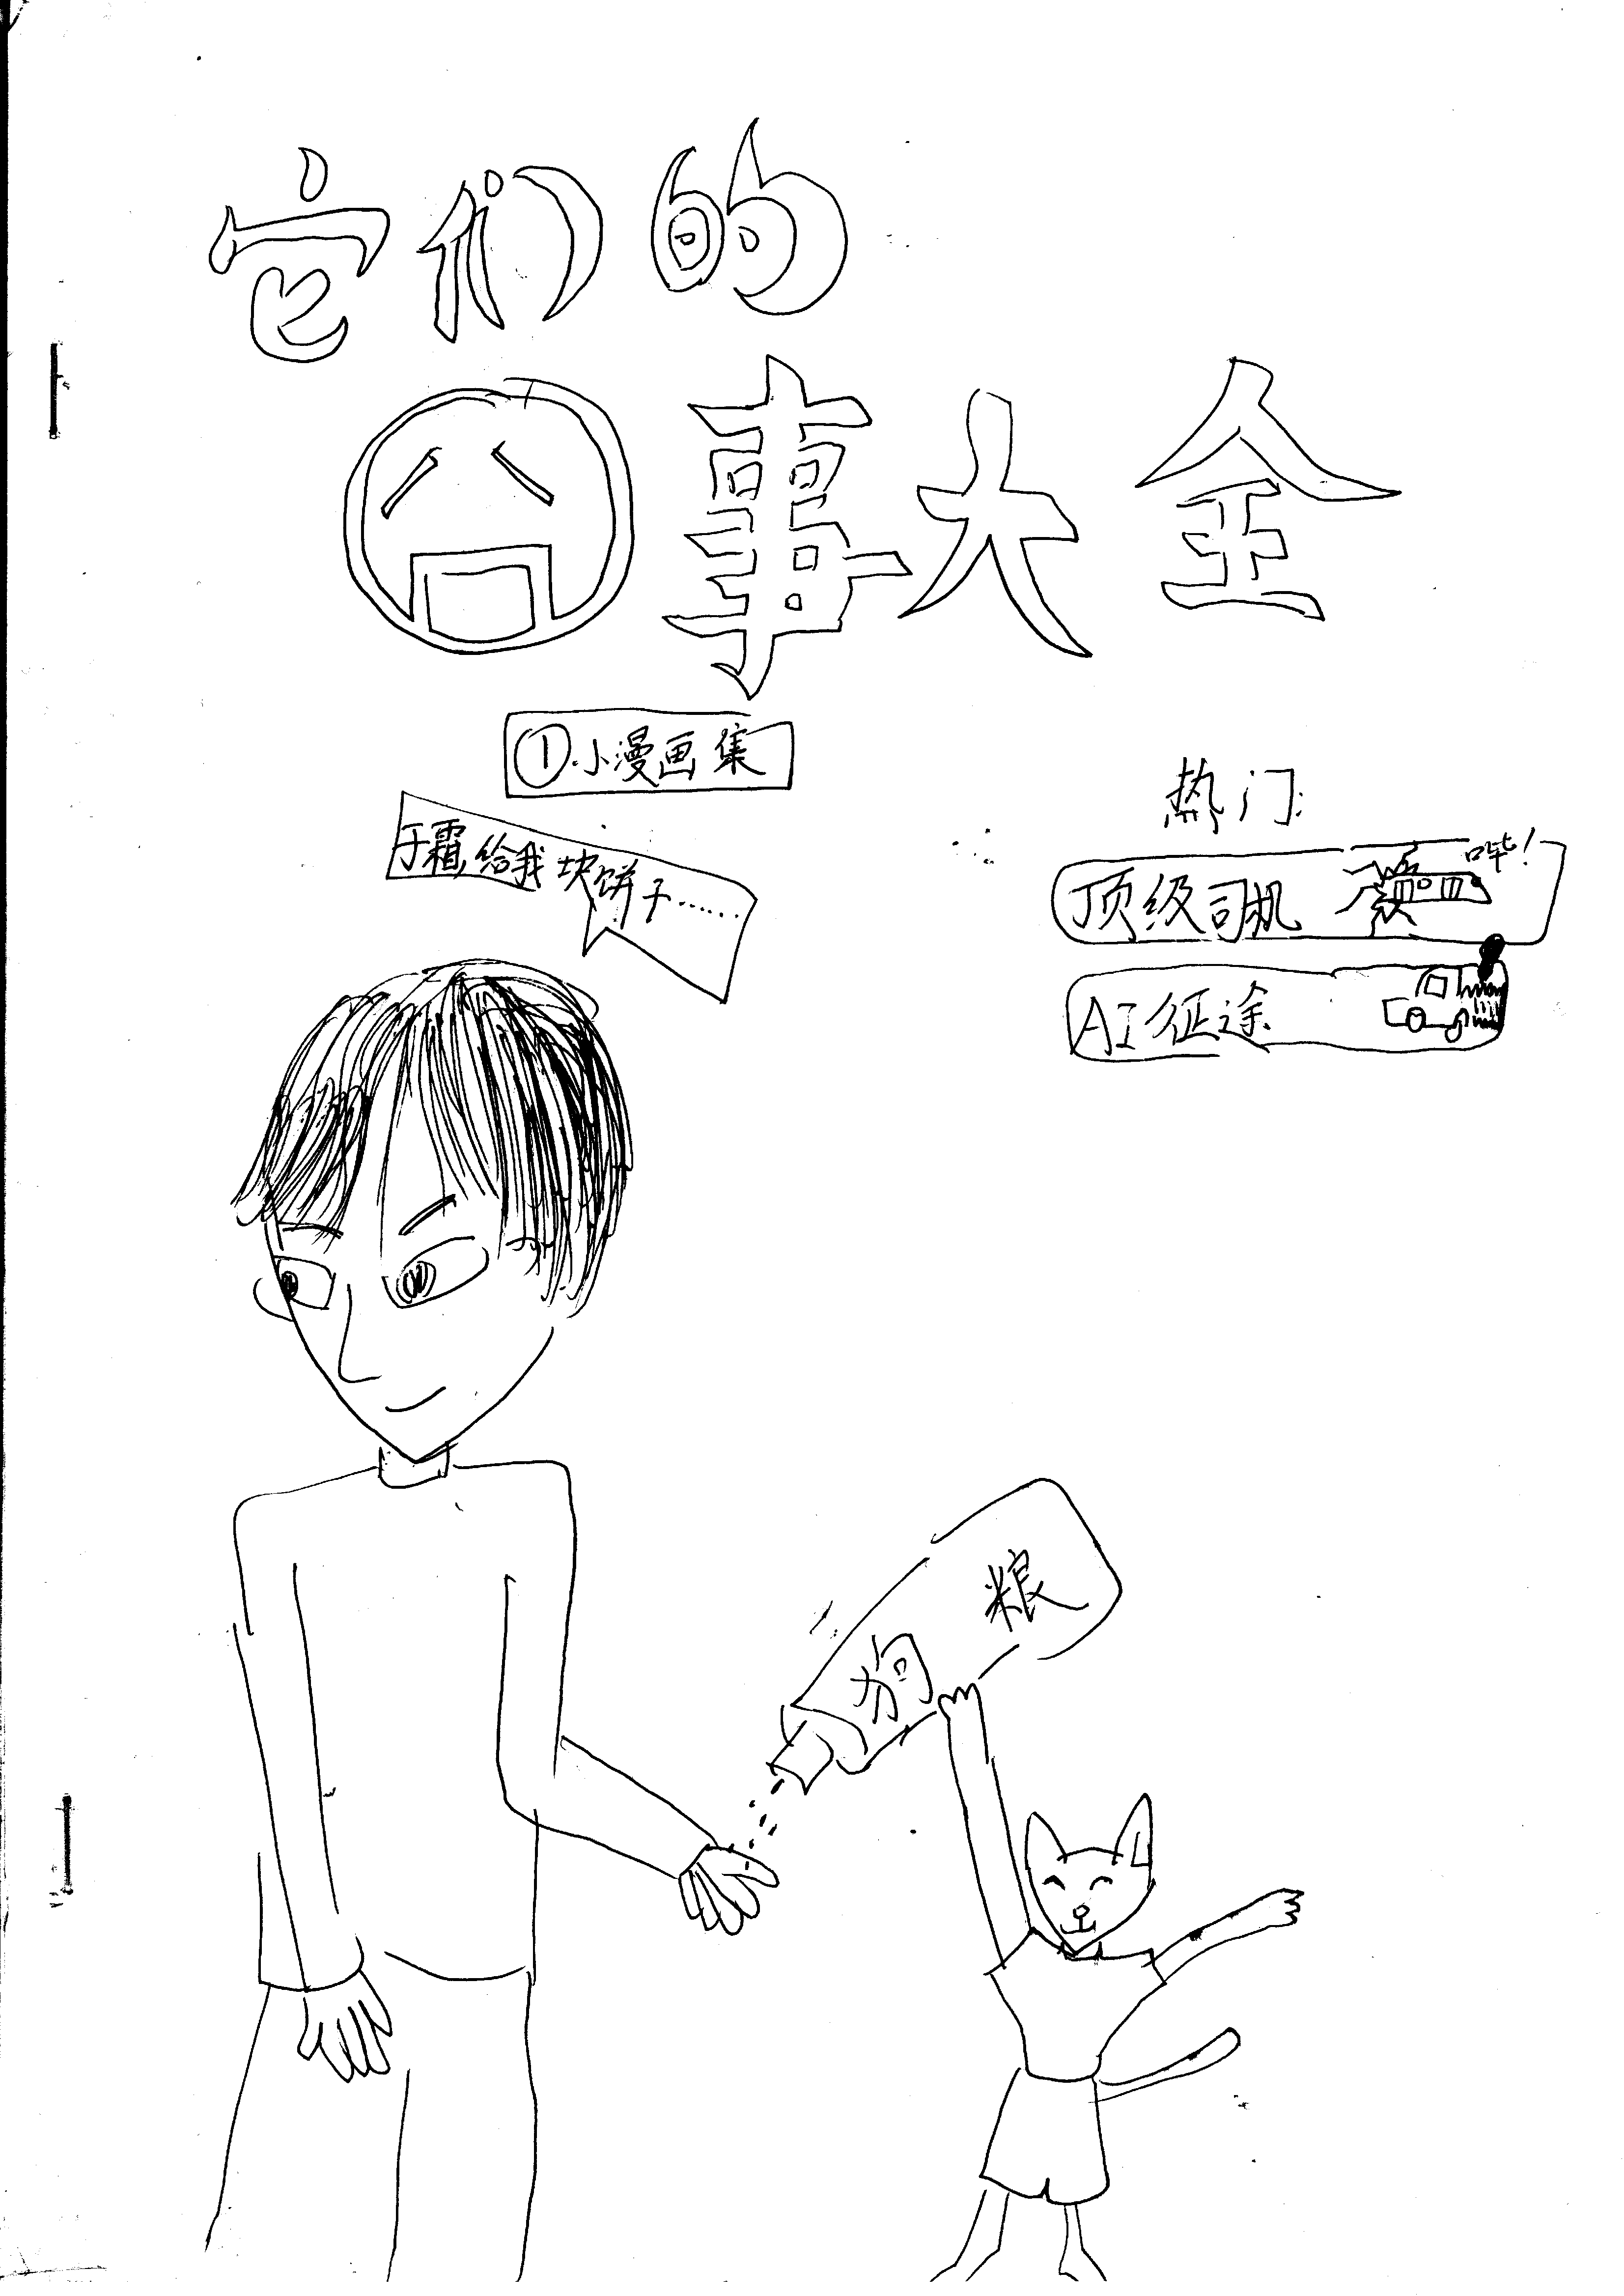 它们的
囧事大全
①小漫画集
于霜,给我块饼子……
热门:
顶级司机
哗!
AI征途
狗粮